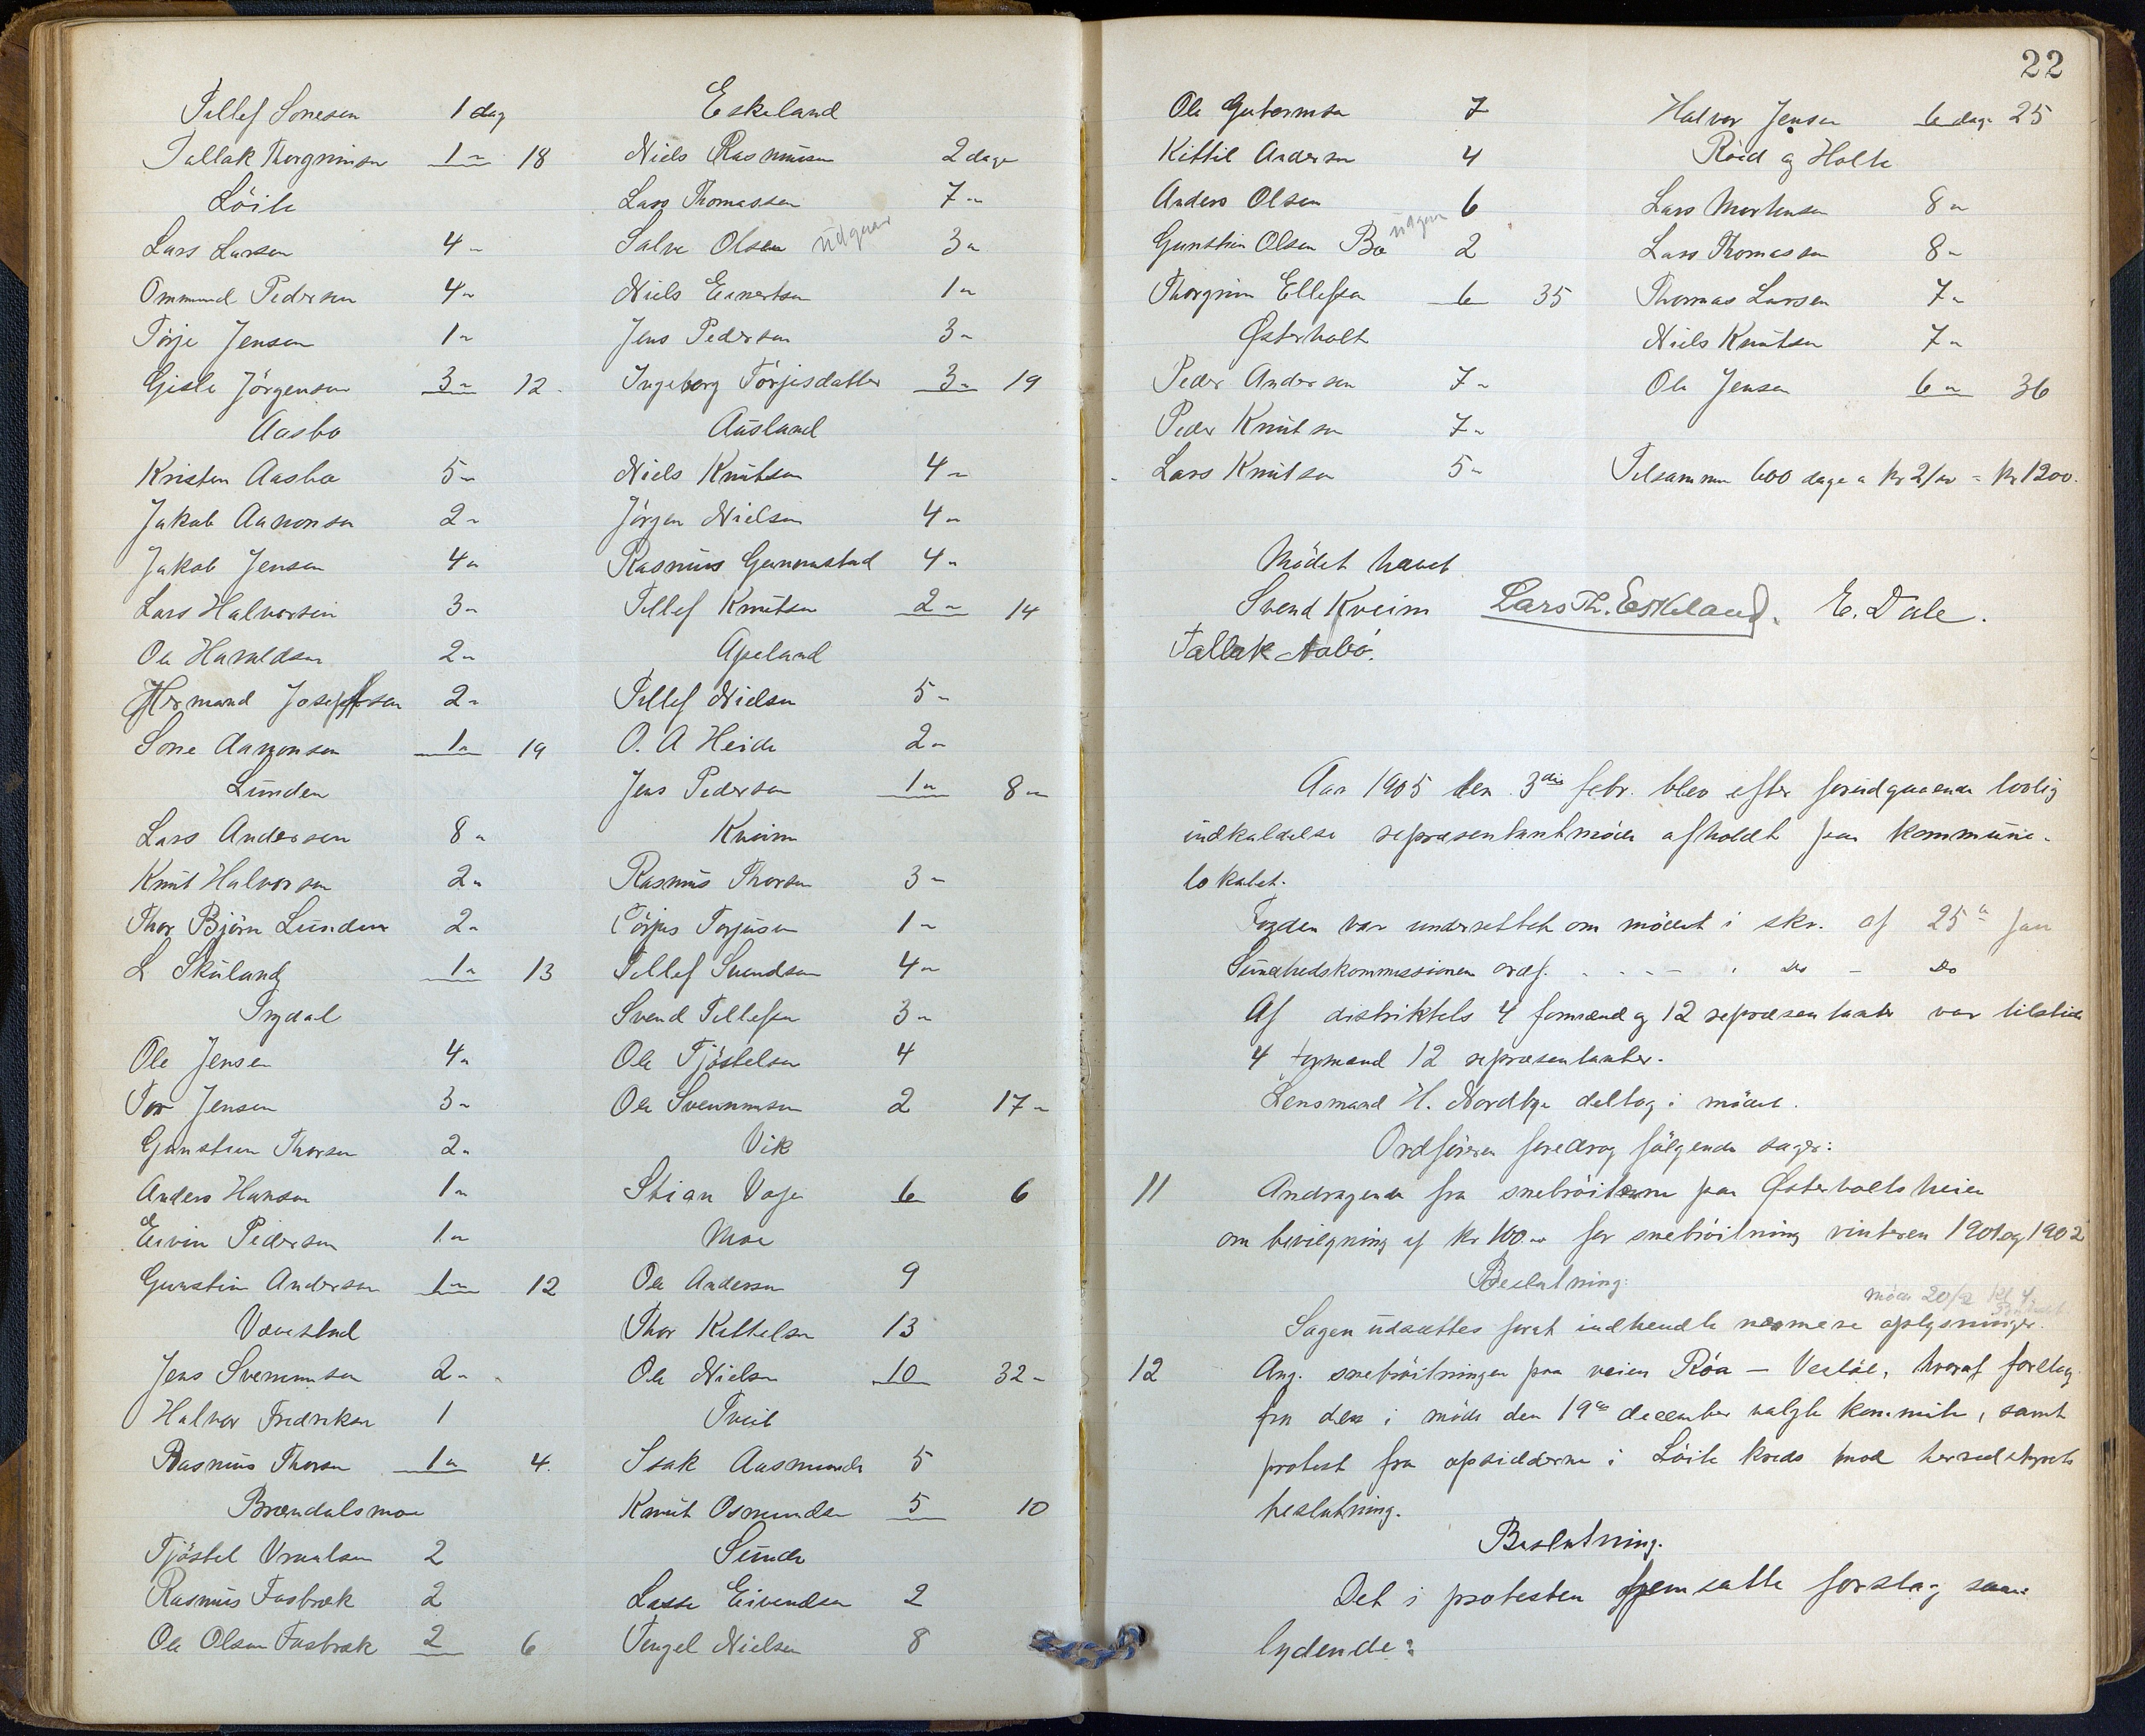 Tellef Sonesen 1 dag
Tallak Thorgrimsen 1 " 18
Löite
Lars Larsen 4 "
Ommund Pedersen 4 "
Törje Jensen 1 "
Gisle Jörgensen 3 " 12
Aasbø
Kristen Aasbø 5 "
Jakob Aanonsen 2 "
Jakob Jensen 4 "
Lars Halvorsen 3 "
Ole Haraldsen 2 "
Hermand Josephsen 2 "
Sone Aanonsen 1 " 19
Lunden
Lars Andersen 8 "
Knut Halvorsen 2 "
Thor Björn Lunden 2 "
L Skuland 1 " 13
Trydal
Ole Jensen 4 "
Tor Jensen 3 "
Gunstein Thorsen 2 "
Anders Hansen 1 "
Eivin Pedersen 1 "
Gunstein Andersen 1 " 12
Vævestad
Jens Svenumsen 2 "
Halvor Fredriksen 1
Rasmus Thorsen 1 " 4
Brændalsmoe
Tjöstel Vraalsen 2
Rasmus Fosbæk 2
Ole Olsen Fosbæk 2 6
Eskeland
Niels Rasmusen 2 dage
Lars Thomassen 7 "
Salve Olsen udgaar 3 "
Niels Einertsen 1 "
Jens Pedersen 3 "
Ingeborg Törjesdatter 3 " 19
Ausland
Niels Knutsen 4 "
Jörgen Nielsen 4 "
Rasmus Gunnnstad 4 "
Tellef Knutsen 2 " 14
Apeland
Tellef Nielsen 5 "
O. A Heide 2 "
Jens Pedersen 1 " 8 "
Kveim
Rasmus Thorsen 3 "
Törjus Torjusen 1 "
Tellef Svendsen 4 "
Svend Tellefsen 3 "
Ole Tjöstelsen 4
Ole Svenumsen 2 17 "
Vik
Stian Vasje 6 6
Moe
Ole Andersen 9
Thor Kittelsen 13
Ole Nielsen 10 32 "
Tveit
Isak Aasmunds 5
Knut Osmundsen 5 10
Sunde
Lasse Eivendsen 2
Tengel Nielsen 8
22
Ole Guttormsen 7
Kittil Andersen 4
Anders Olsen 6
Gunstein Olsen Bø udgaar 2
Thorgrim Ellefsen 6 35
Østerholt
Peder Andersen 7 "
Peder Knutsen 7 "
Lars Knutsen 5 "
Halvor Jensen 6 dage 25
Röed og Holte
Lars Mortensen 8 "
Lars Thomassen 8 "
Thomas Larsen 7 "
Niels Knutsen 7 "
Ole Jensen 6 " 36
Tilsammen 600 dage a kr 2/00 = kr 1200.
Mödet hævet
Svend Kveim Lars Th. Eskeland. E. Dale.
Tallak Aabö.
Aar 1905 den 3die febr. blev efter forudgaaende lovlig
indkaldelse repræsentantmøde afholdt paa kommune-
lokalet.
Fogden var underrettet om mödet i skr. af 25de Jan
Sundhedskommissionens ordf. - - - - " Do - Do
Af distriktets 4 formænd og 12 repræsentanter var tilstede
4 formænd 12 repræsentanter.
Lensmand H. Nordbye deltog i mödet.
Ordföreren foredrog fölgende sager:
11 Andragende fra snebröiterne paa Østerholtsheien
om bevilgning af kr 100.00 for snebröitning vinteren 1901 og 1902
Beslutning:
möde 20/2 kl 4
Sagen udsættes forat indhendte nærmere oplysninger.
12 Ang. snebröitningen paa veien Röa — Vestöl, hvoraf foreligger
fra den i möde den 19de december valgte kommite, samt
protest fra opsidderne i Löite kreds mod herredstyrets
beslutning.
Beslutning.
Det i protesten fremsatte forslag saa-
lydende: